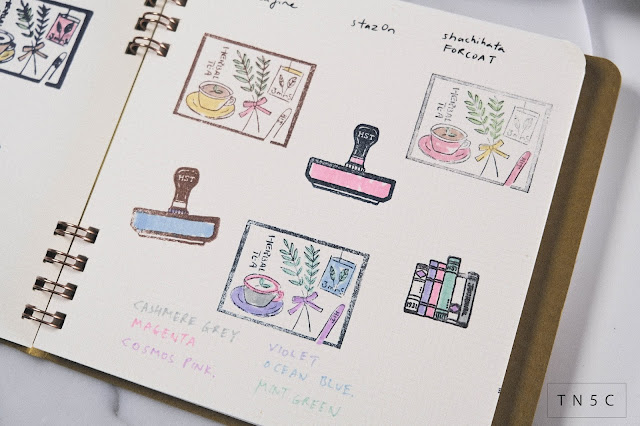 stazOn
shachihata
FORCOAT
HERBAL
TEA
HERBAL
TEA
HST
HST
HERBAL
TEA
CASHMERE GREY
MAGENTA
COSMOS PINK.
VIOLET
OCEAN BLUE.
MINT GREEN
TN5C